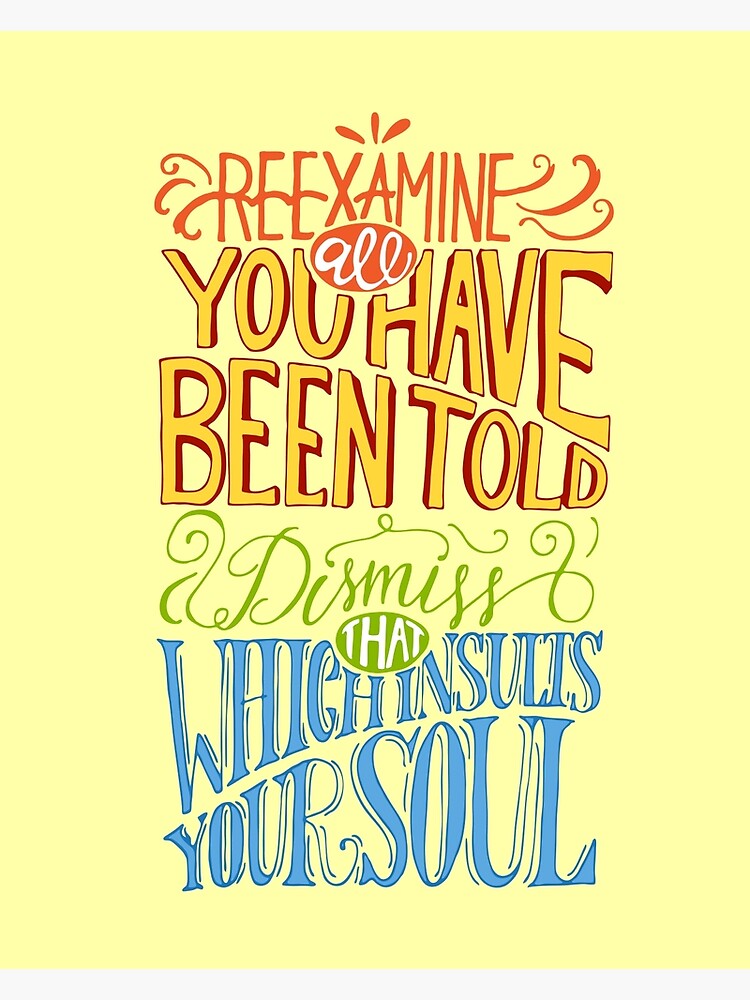 REEXAMINE
all
YOU HAVE
BEEN TOLD
Dismiss
THAT
WHICH INSULTS
YOUR SOUL